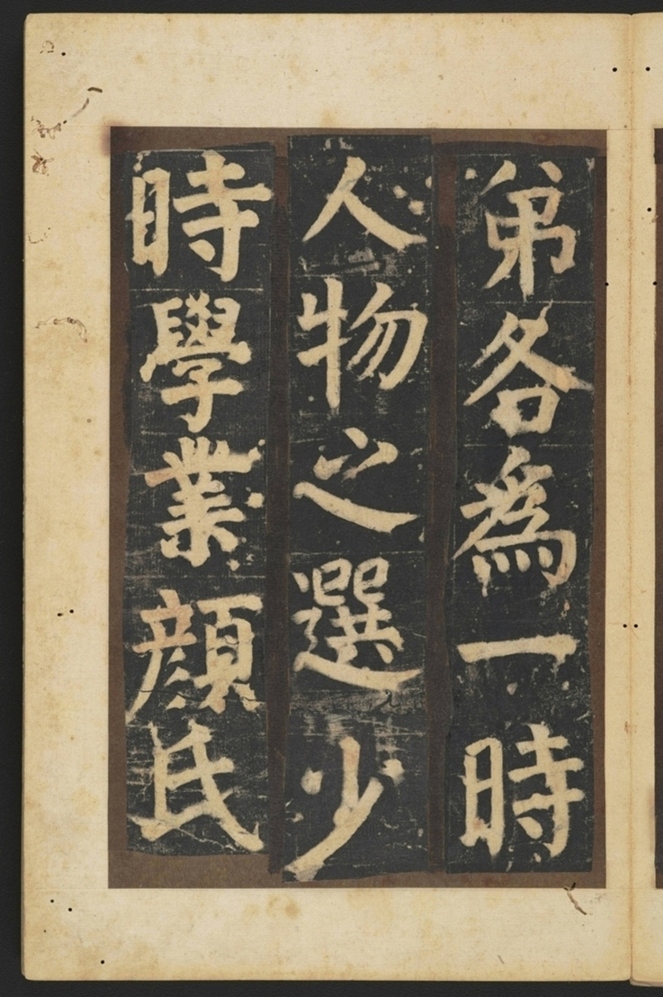 弟各為一時
人物之選少
時學業顏氏